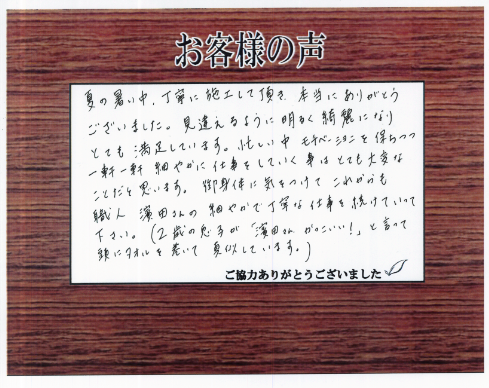 お客様の声
夏の暑い中、丁寧に施工して頂き、本当にありがとう
ございました。見違えるように明るく綺麗になり
とても満足しています。忙しい中モチベーションを保ちつつ
一軒一軒細やかに仕事をしていく事はとても大変な
ことだと思います。御身体に気をつけてこれからも
職人濱田さんの細やかで丁寧な仕事を続けていって
下さい。(2歳の息子が「濱田さんかっこいい!」と言って
頭にタオルを巻いて真似しています。)
ご協力ありがとうございました